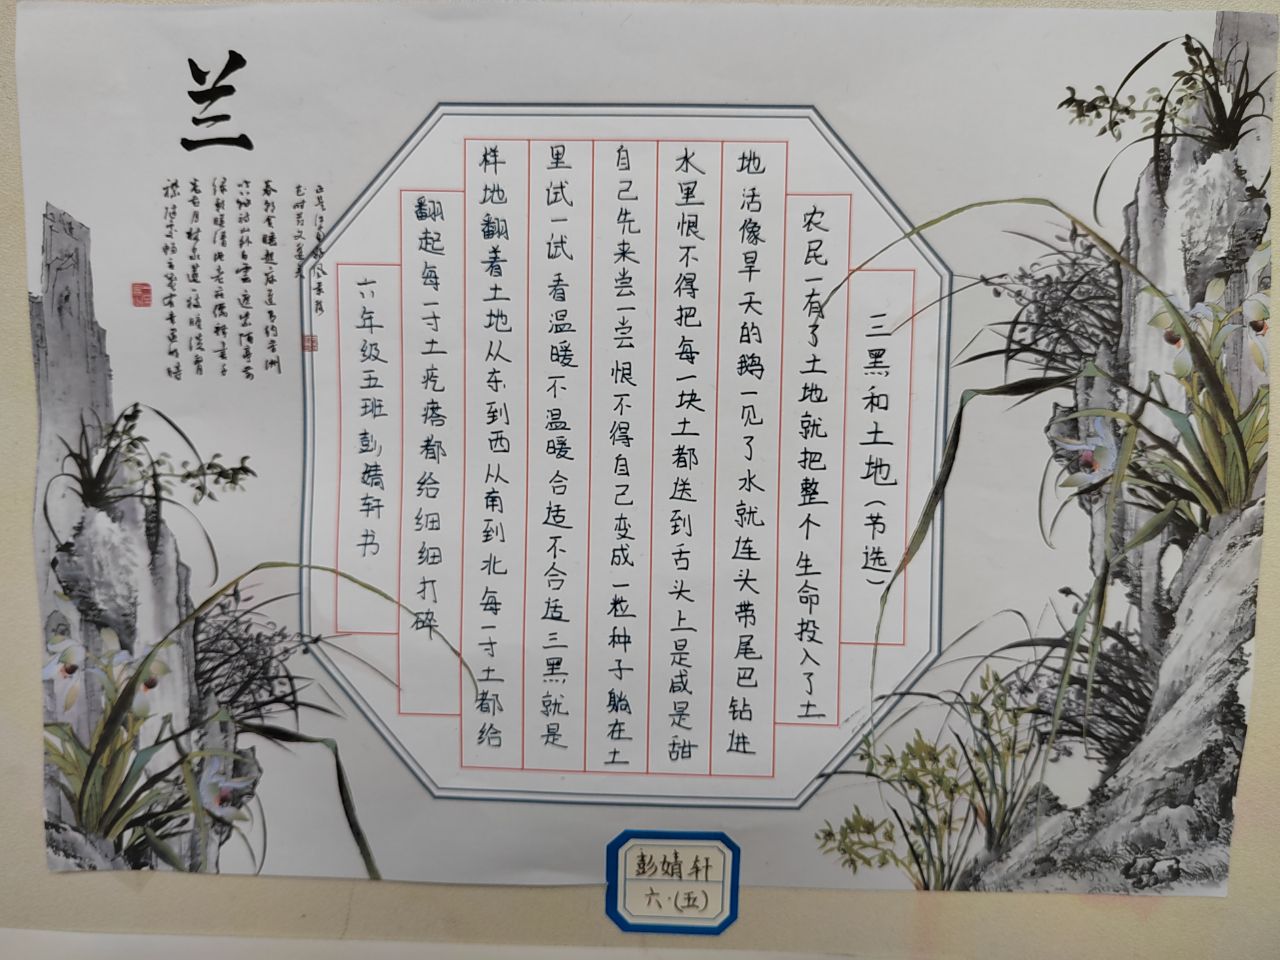 兰
三黑和土地(节选)
农民一有了土地就把整个生命投入了土
地活像旱天的鹅一见了水就连头带尾巴钻进
水里恨不得把每一块土都送到舌头上是咸是甜
自己先来尝一尝恨不得自己变成一粒种子躺在土
里试一试看温暖不温暖合适不合适三黑就是
样地翻着土地从东到西从南到北每一寸土都给
翻起每一寸土疙瘩都给细细打碎
六年级五班彭婧轩书
彭婧轩
六.(五)